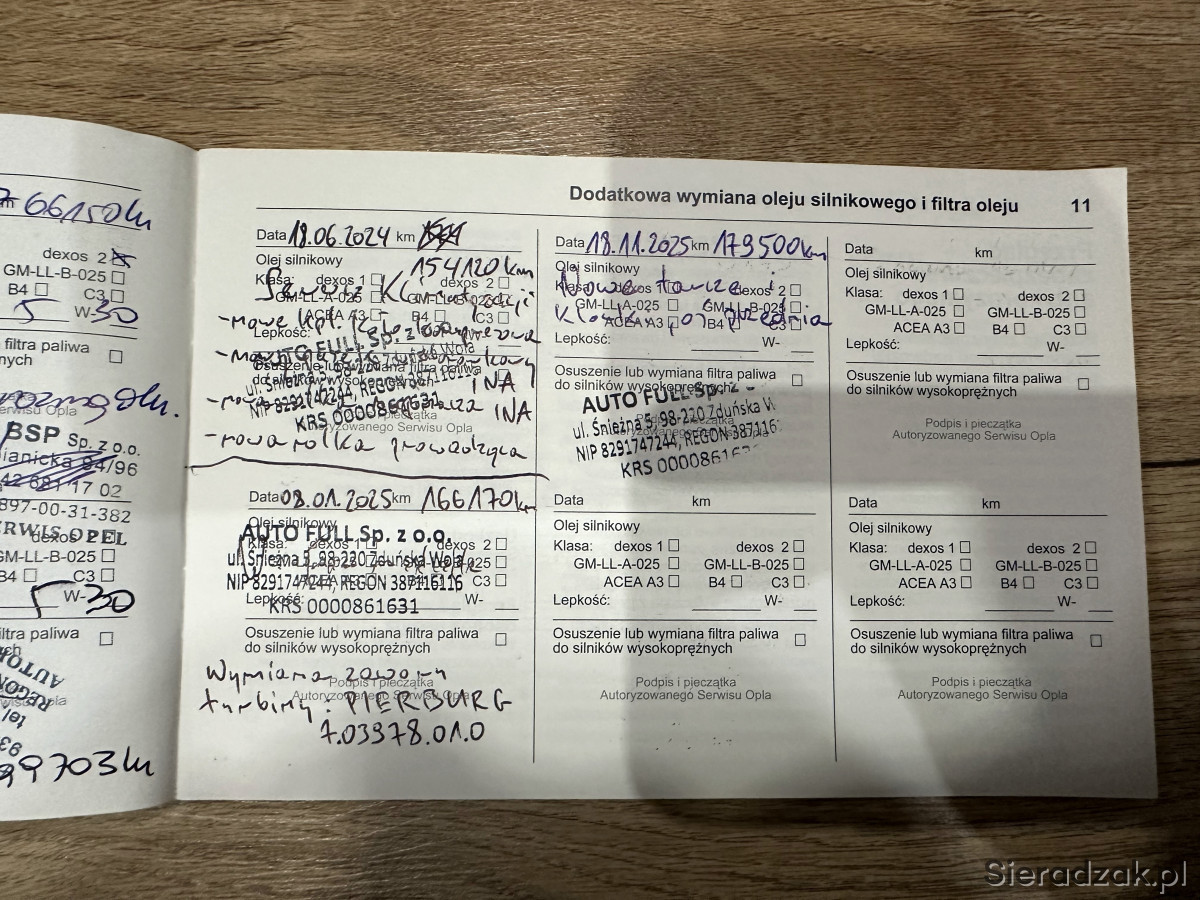 66150km
dexos 2
GM-LL-B-025
B4 C3
5 W-30
filtra paliwa
nych
BSP Sp. z o.o.
ianicka 94/96
42 681 17 02
897-00-31-382
SERWIS OPEL
dexos 2
GM-LL-B-025
B4 C3
5 W-30
filtra paliwa
99703km
Dodatkowa wymiana oleju silnikowego i filtra oleju 11
Data 18.06.2024 km
154120km
Olej silnikowy
Klasa: dexos 1 dexos 2
GM-LL-A-025 GM-LL-B-025
Serwis Klimatyzacji
ACEA A3 B4 C3
- nowe kpl.
Lepkość: W-
AUTO FULL Sp. z o.o.
ul. Śnieżna 5, 98-220 Zduńska Wola
NIP 8291747244, REGON 387116116
KRS 0000861631
INA
INA
Autoryzowanego Serwisu Opla
- nowa rolka prowadząca
Data 08.01.2025 km 166170km
Olej silnikowy
AUTO FULL Sp. z o.o.
Klasa: dexos 1 dexos 2
ul. Śnieżna 5, 98-220 Zduńska Wola
NIP 8291747244, REGON 387116116
C3
Lepkość: W-
KRS 0000861631
Osuszenie lub wymiana filtra paliwa
do silników wysokoprężnych
Wymiana zaworu
Podpis i pieczątka
turbiny: PIERBURG
Autoryzowanego Serwisu Opla
7.03978.01.0
Data 18.11.2025 km 179500km
Olej silnikowy
Klasa: dexos 1 dexos 2
Nowe tarcze
GM-LL-A-025 GM-LL-B-025
klocki przednia
ACEA A3 B4 C3
Lepkość: W-
Osuszenie lub wymiana filtra paliwa
do silników wysokoprężnych
AUTO FULL Sp. z
ul. Śnieżna 5, 98-220 Zduńska W
Podpis i pieczątka
Autoryzowanego Serwisu Opla
NIP 8291747244, REGON 387116
KRS 0000861
Data km
Olej silnikowy
Klasa: dexos 1 dexos 2
GM-LL-A-025 GM-LL-B-025
ACEA A3 B4 C3
Lepkość: W-
Osuszenie lub wymiana filtra paliwa
do silników wysokoprężnych
Podpis i pieczątka
Autoryzowanego Serwisu Opla
Data km
Olej silnikowy
Klasa: dexos 1 dexos 2
GM-LL-A-025 GM-LL-B-025
ACEA A3 B4 C3
Lepkość: W-
Osuszenie lub wymiana filtra paliwa
do silników wysokoprężnych
Podpis i pieczątka
Autoryzowanego Serwisu Opla
Data km
Olej silnikowy
Klasa: dexos 1 dexos 2
GM-LL-A-025 GM-LL-B-025
ACEA A3 B4 C3
Lepkość: W-
Osuszenie lub wymiana filtra paliwa
do silników wysokoprężnych
Podpis i pieczątka
Autoryzowanego Serwisu Opla
Sieradzak.pl